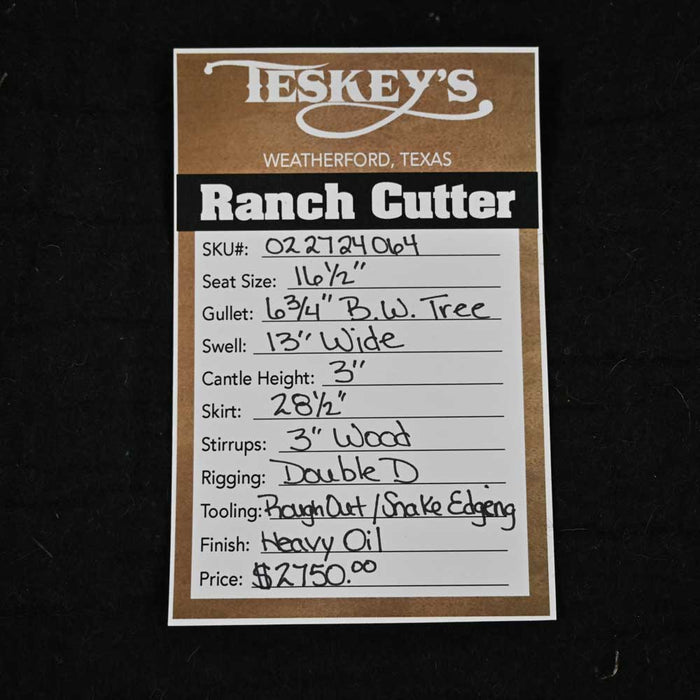 TESKEY'S
WEATHERFORD, TEXAS
Ranch Cutter
SKU#: 022724064
Seat Size: 16 1/2"
Gullet: 6 3/4" B.W. Tree
Swell: 13" Wide
Cantle Height: 3"
Skirt: 28 1/2"
Stirrups: 3" Wood
Rigging: Double D
Tooling: Rough Out / Snake Edgeing
Finish: Heavy Oil
Price: $2750.00